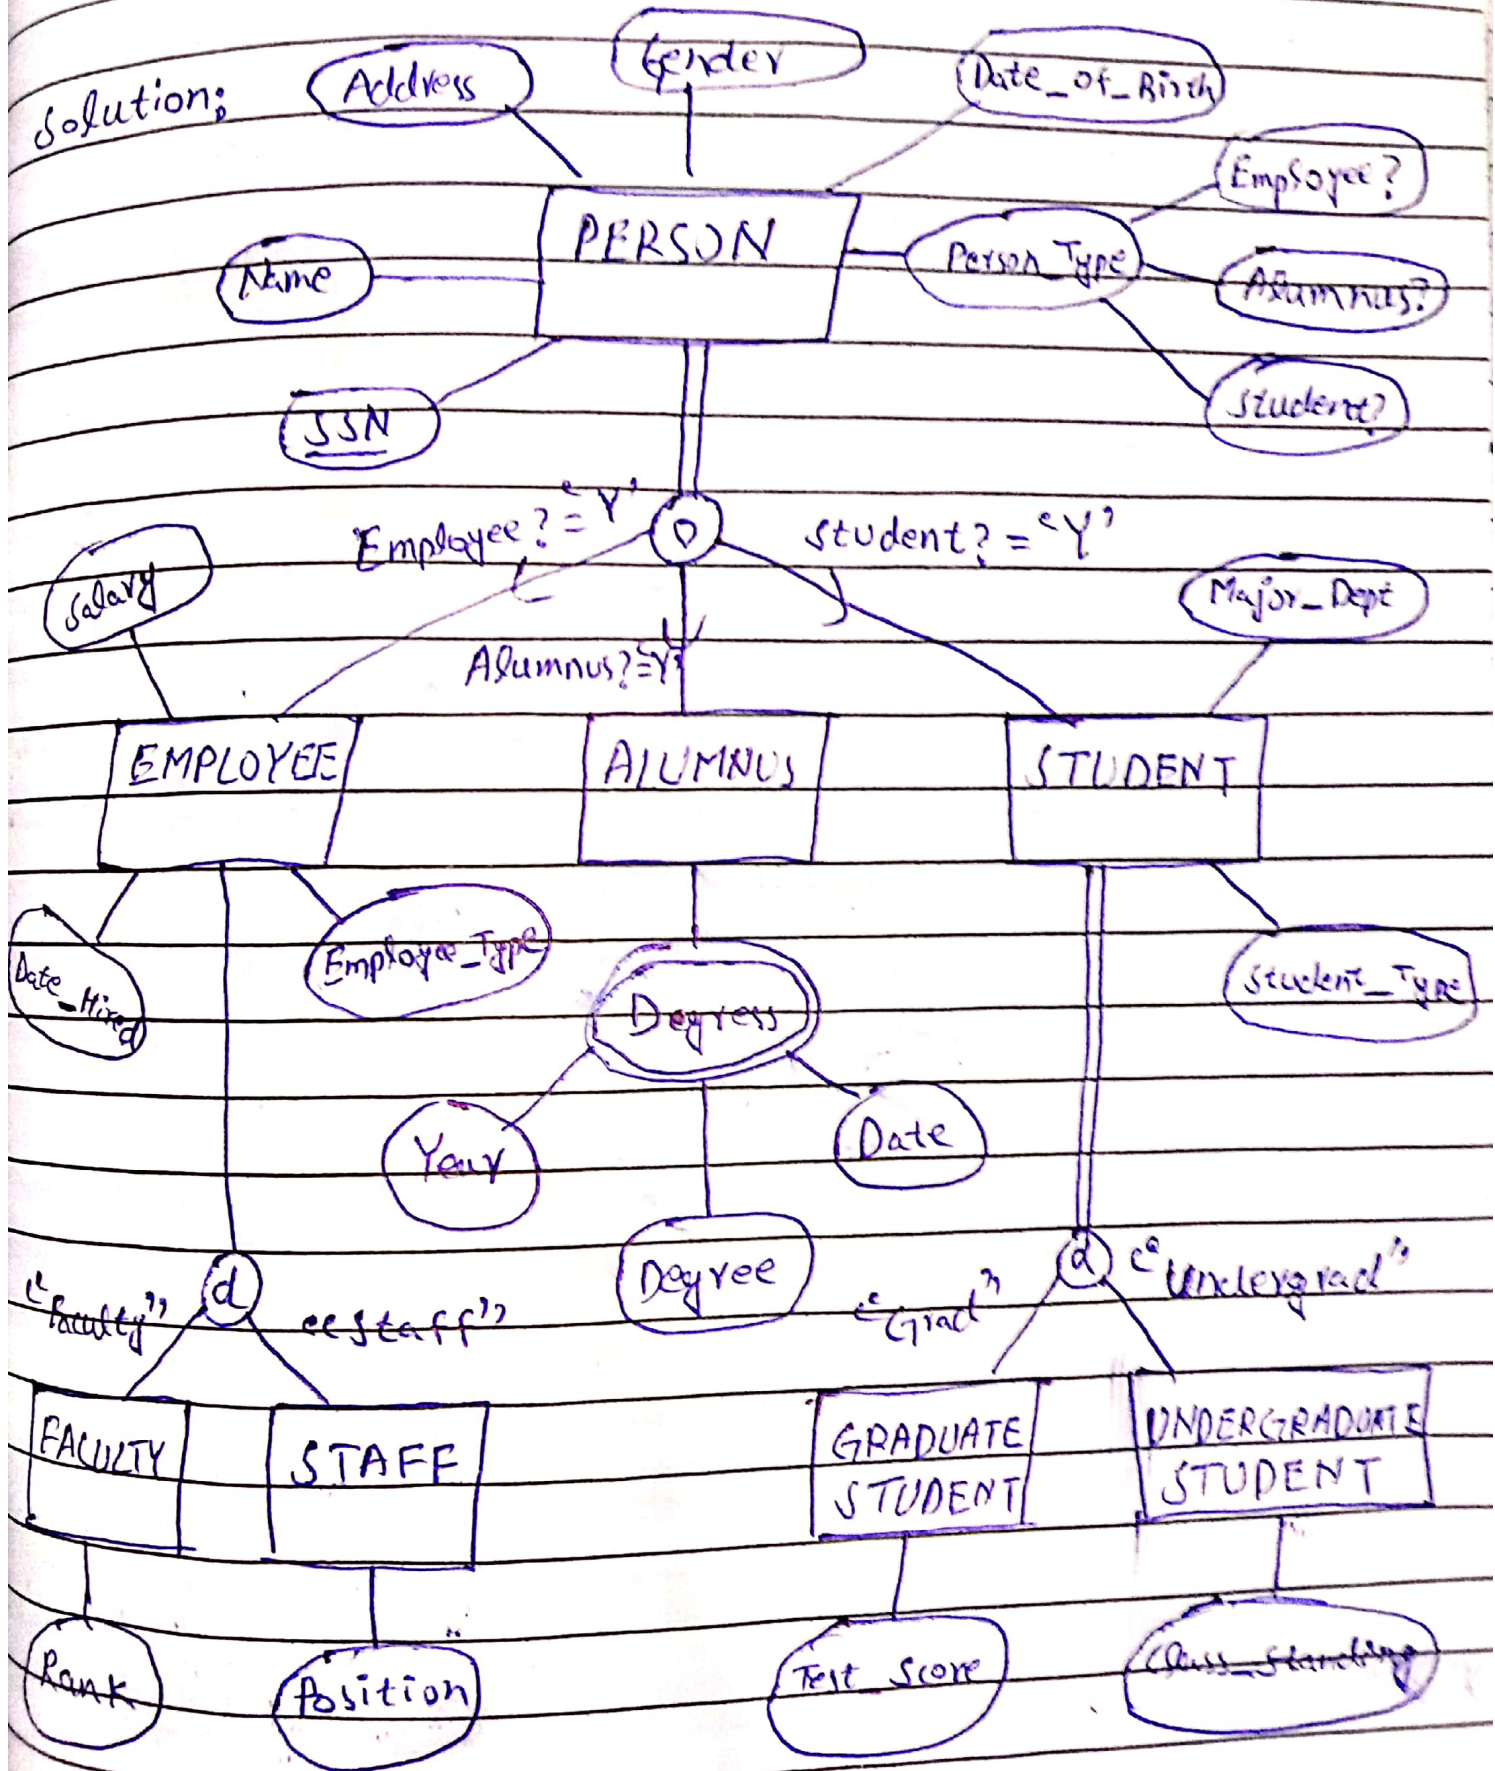 Solution:
Address
Gender
Date_of_Birth
Employee?
PERSON
Person_Type
Name
Alumnus?
SSN
Student?
Employee? = 'Y'
O
Student? = 'Y'
Salary
Major_Dept
Alumnus? = 'Y'
EMPLOYEE
ALUMNUS
STUDENT
Date_Hired
Employee_Type
Degress
Student_Type
Year
Date
Degree
"Faculty"
d
"Staff"
"Grad"
d
"Undergrad"
FACULTY
STAFF
GRADUATE
STUDENT
UNDERGRADUATE
STUDENT
Rank
Position
Test_Score
Class_Standing